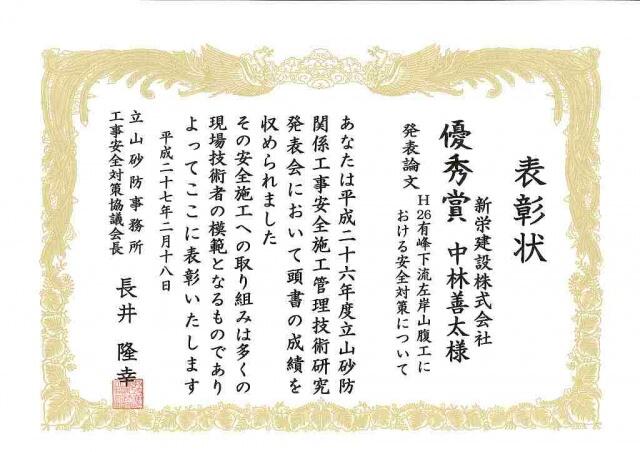 表彰状
新栄建設株式会社
優秀賞 中林善太様
発表論文 H26有峰下流左岸山腹工に
おける安全対策について
あなたは平成二十六年度立山砂防
関係工事安全施工管理技術研究
発表会において頭書の成績を
収められました
その安全施工への取り組みは多くの
現場技術者の模範となるものであり
よってここに表彰いたします
平成二十七年二月十八日
立山砂防事務所
工事安全対策協議会長 長井隆幸